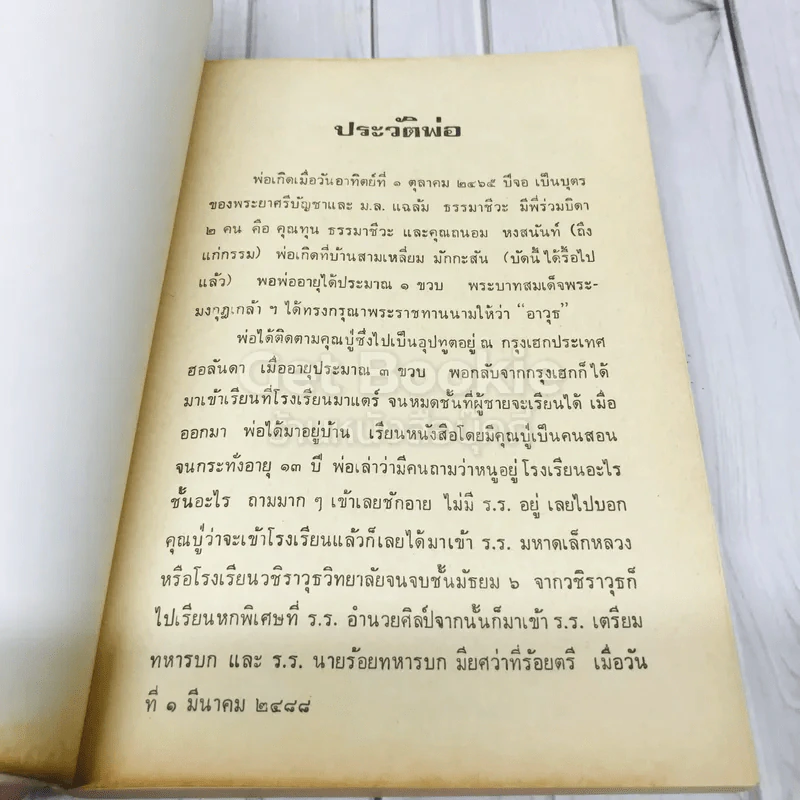 ประวัติพ่อ
พ่อเกิดเมื่อวันอาทิตย์ที่ ๑ ตุลาคม ๒๔๖๕ ปีจอ เป็นบุตร
ของพระยาศรีบัญชาและ ม.ล. แฉล้ม ธรรมาชีวะ มีพี่ร่วมบิดา
๒ คน คือ คุณทุน ธรรมาชีวะ และคุณถนอม หงสนันท์ (ถึง
แก่กรรม) พ่อเกิดที่บ้านสามเหลี่ยม มักกะสัน (บัดนี้ ได้รื้อไป
แล้ว) พอพ่ออายุได้ประมาณ ๑ ขวบ พระบาทสมเด็จพระ-
มงกุฎเกล้า ฯ ได้ทรงกรุณาพระราชทานนามให้ว่า “อาวุธ”
พ่อได้ติดตามคุณปู่ซึ่งไปเป็นอุปทูตอยู่ ณ กรุงเฮกประเทศ
ฮอลันดา เมื่ออายุประมาณ ๓ ขวบ พอกลับจากกรุงเฮกก็ได้
มาเข้าเรียนที่โรงเรียนมาแตร์ จนหมดชั้นที่ผู้ชายจะเรียนได้ เมื่อ
ออกมา พ่อได้มาอยู่บ้าน เรียนหนังสือโดยมีคุณปู่เป็นคนสอน
จนกระทั่งอายุ ๑๓ ปี พ่อเล่าว่ามีคนถามว่าหนูอยู่โรงเรียนอะไร
ชั้นอะไร ถามมาก ๆ เข้าเลยชักอาย ไม่มี ร.ร. อยู่ เลยไปบอก
คุณปู่ว่าจะเข้าโรงเรียนแล้วก็เลยได้มาเข้า ร.ร. มหาดเล็กหลวง
หรือโรงเรียนวชิราวุธวิทยาลัยจนจบชั้นมัธยม ๖ จากวชิราวุธก็
ไปเรียนหกพิเศษที่ ร.ร. อำนวยศิลป์จากนั้นก็มาเข้า ร.ร. เตรียม
ทหารบก และ ร.ร. นายร้อยทหารบก มียศว่าที่ร้อยตรี เมื่อวัน
ที่ ๑ มีนาคม ๒๔๘๘
Get Bookie